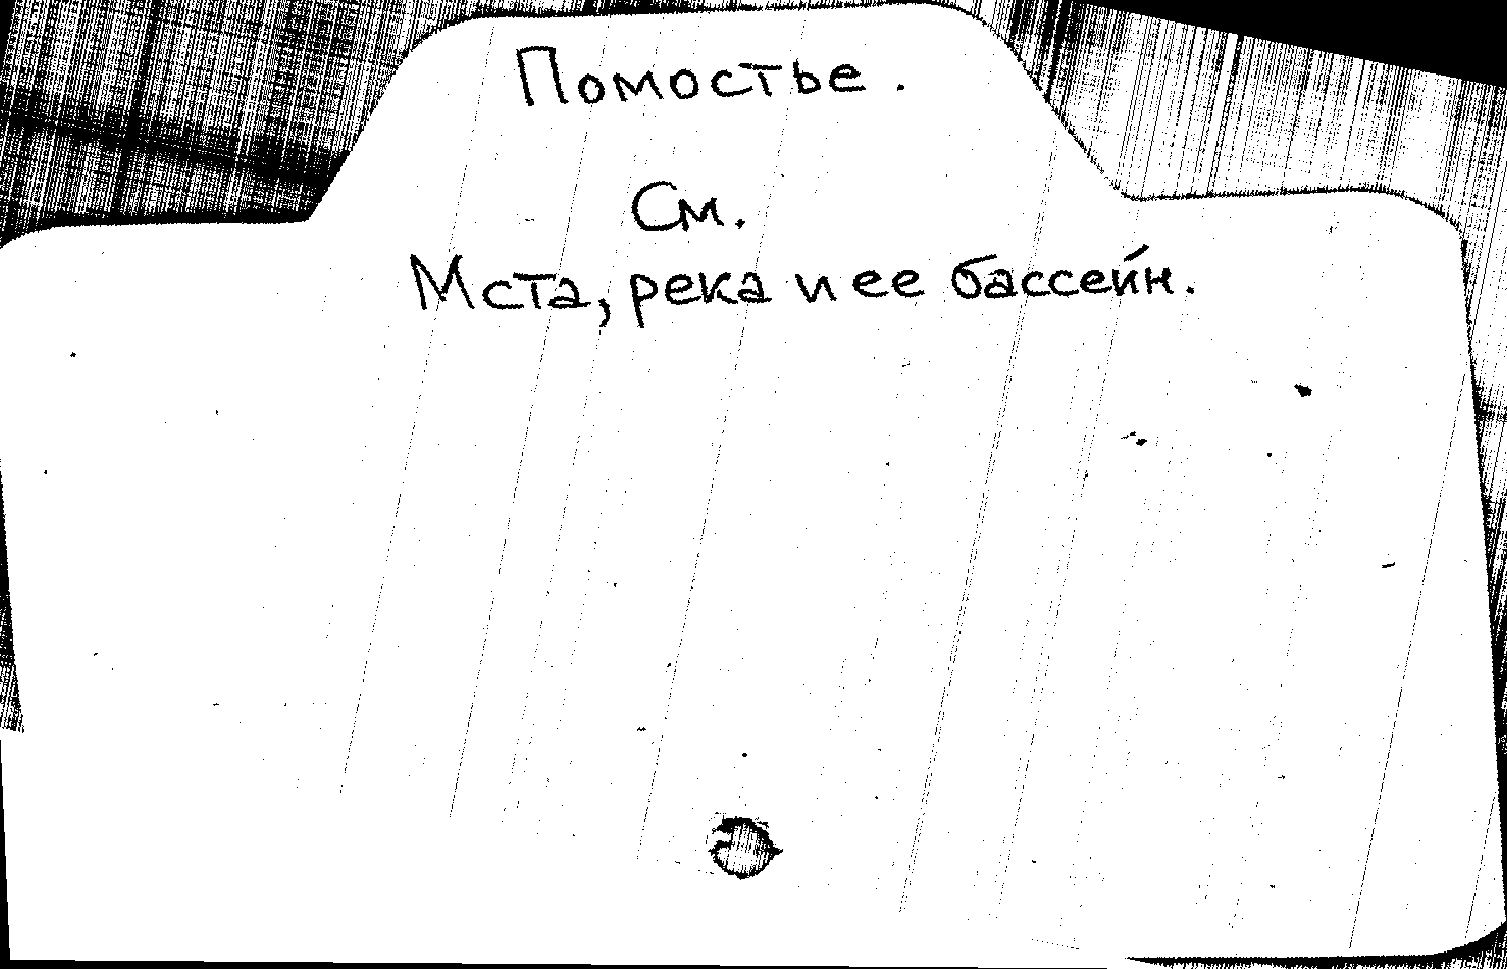 Помостье.
См.
Мста, река и ее бассейн.